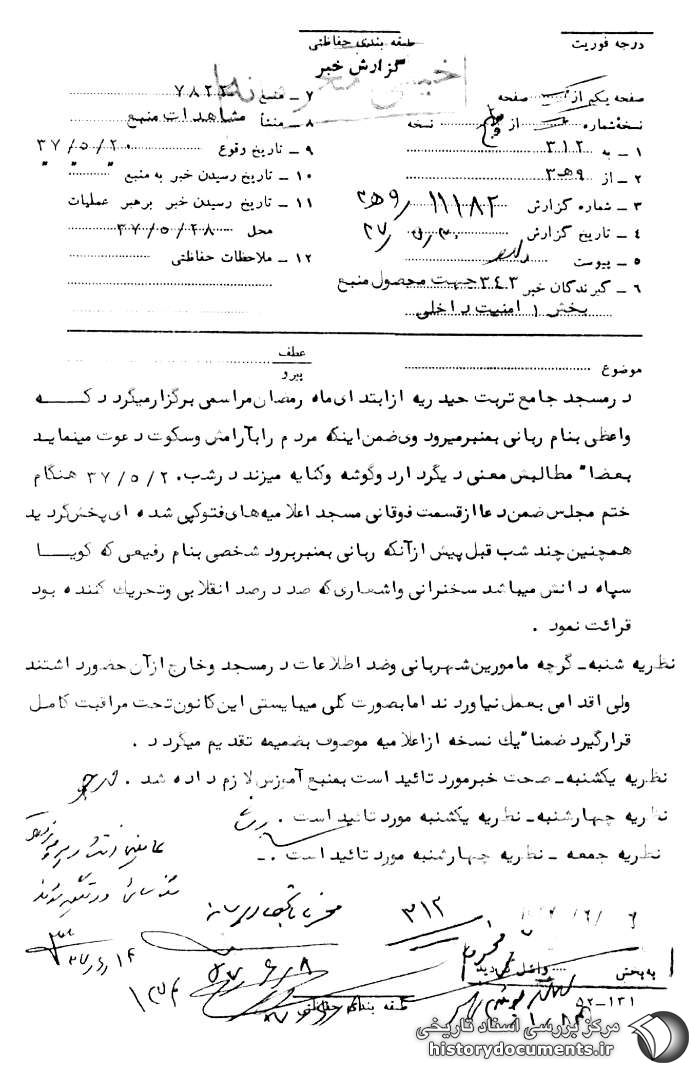 درجه فوریت
طبقه بندی حفاظتی
گزارش خبر
خیلی محرمانه
صفحه یکم از صفحه
نسخه شماره از نسخه
۱ ـ به ۳۱۲
۲ ـ از ۹ه‍۳
۳ ـ شماره گزارش ۱۱۱۸۲ / ۹ه‍۳
۴ ـ تاریخ گزارش
۵ ـ پیوست دارد
۶ ـ گیرندگان خبر ۳۴۳ جهت محصول منبع
بخش ۱ امنیت داخلی
۷ ـ منبع ۷۸۲۲
۸ ـ منشأ مشاهدات منبع
۹ ـ تاریخ وقوع ۳۷/۵/۲۰
۱۰ ـ تاریخ رسیدن خبر به منبع
۱۱ ـ تاریخ رسیدن خبر برهبر عملیات
محل ۳۷/۵/۲۸
۱۲ ـ ملاحظات حفاظتی
موضوع
عطف
پیرو
درمسجد جامع تربت حیدریه ازابتدای‌ماه رمضان‌مراسمی برگزارمیگردد کـه
واعظی بنام ربانی بمنبرمیرود وی‌ضمن‌اینکه مردم رابآرامش وسکوت دعوت مینماید
بعضا" مطالبش معنی دیگردارد وگوشه وکنایه میزند درشب، ۳۷/۵/۲ هنگام
ختم مجلس ضمن‌دعاازقسمت فوقانی مسجد اعلامیه‌های‌فتوکپی شده ای‌پخش‌گردید
همچنین‌چند شب قبل‌پیش ازآنکه ربانی بمنبربرود شخصی بنام رفیعی که گویـا
سپاه دانش میباشد سخنرانی واشعاری‌که صد درصد انقلابی وتحریک کننده بود
قرائت نمود .
نظریه شنبه‌ـ گرچه مامورین‌شهربانی وضد اطلاعات درمسجد وخارج ازآن‌حضورد اشتند
ولی اقدامی بعمل نیاوردند امابصورت کلی میبایستی این‌کانون‌تحت مراقبت کامل
قرارگیرد ضمنا"یک نسخه ازاعلامیه موصوف بضمیمه تقدیم میگردد .
نظریه یکشنبه‌ـ صحت خبرمورد تائید است بمنبع آموزش‌لازم داده شد .
نظریه چهارشنبه‌ـ نظریه یکشنبه مورد تائید است .
نظریه جمعه ـ نظریه چهارشنبه مورد تائید است .ـ
۳۱۲
به‌بخش
واصل گردید
۵۲-۱۳۱
طبقه بندی حفاظتی
مرکز بررسی اسناد تاریخی
historydocuments.ir